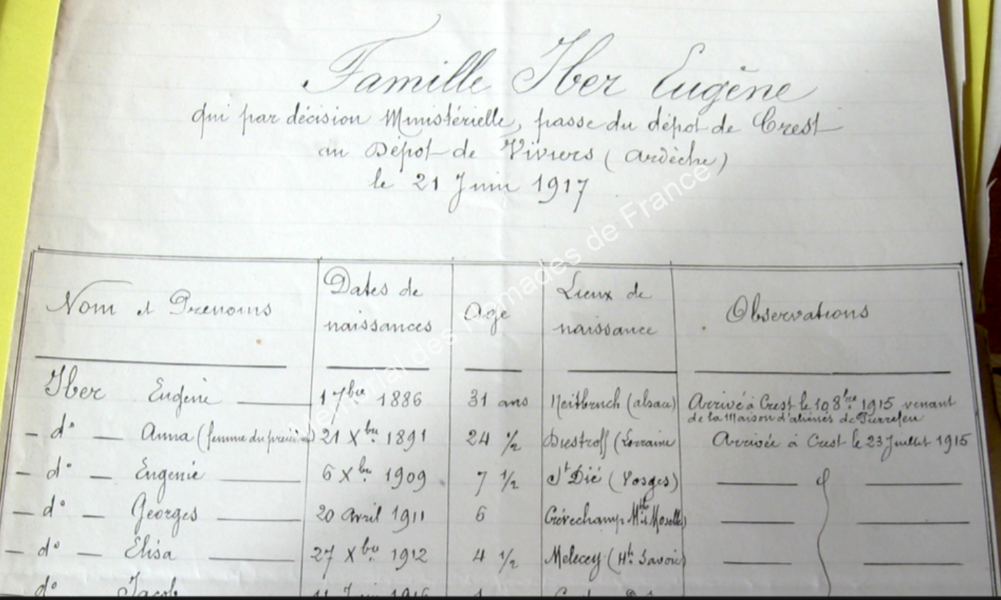 Famille Iber Eugène
qui par décision Ministérielle, passe du dépôt de Crest
au Dépôt de Viviers (Ardèche)
le 21 Juin 1917
Nom et Prenoms Dates de naissances Age Lieux de naissance Observations
Iber Eugène 1 7bre 1886 31 ans (alsace) Arrivé à Crest le 10 8bre 1915 venant
de la Maison d'aliénés de Pierrefeu
- do - Anna (femme du 21 Xbre 1891 24 1/2 (Lorraine Arrivée à Crest le 23 Juillet 1915
- do - Eugenie 6 Xbre 1909 7 1/2 St Dié (Vosges)
- do - Georges 20 Avril 1911 6
- do - Elisa 27 Xbre 1912 4 1/2 Melecey (Hte Savoie)
do Jacob
Mémorial des Nomades de France